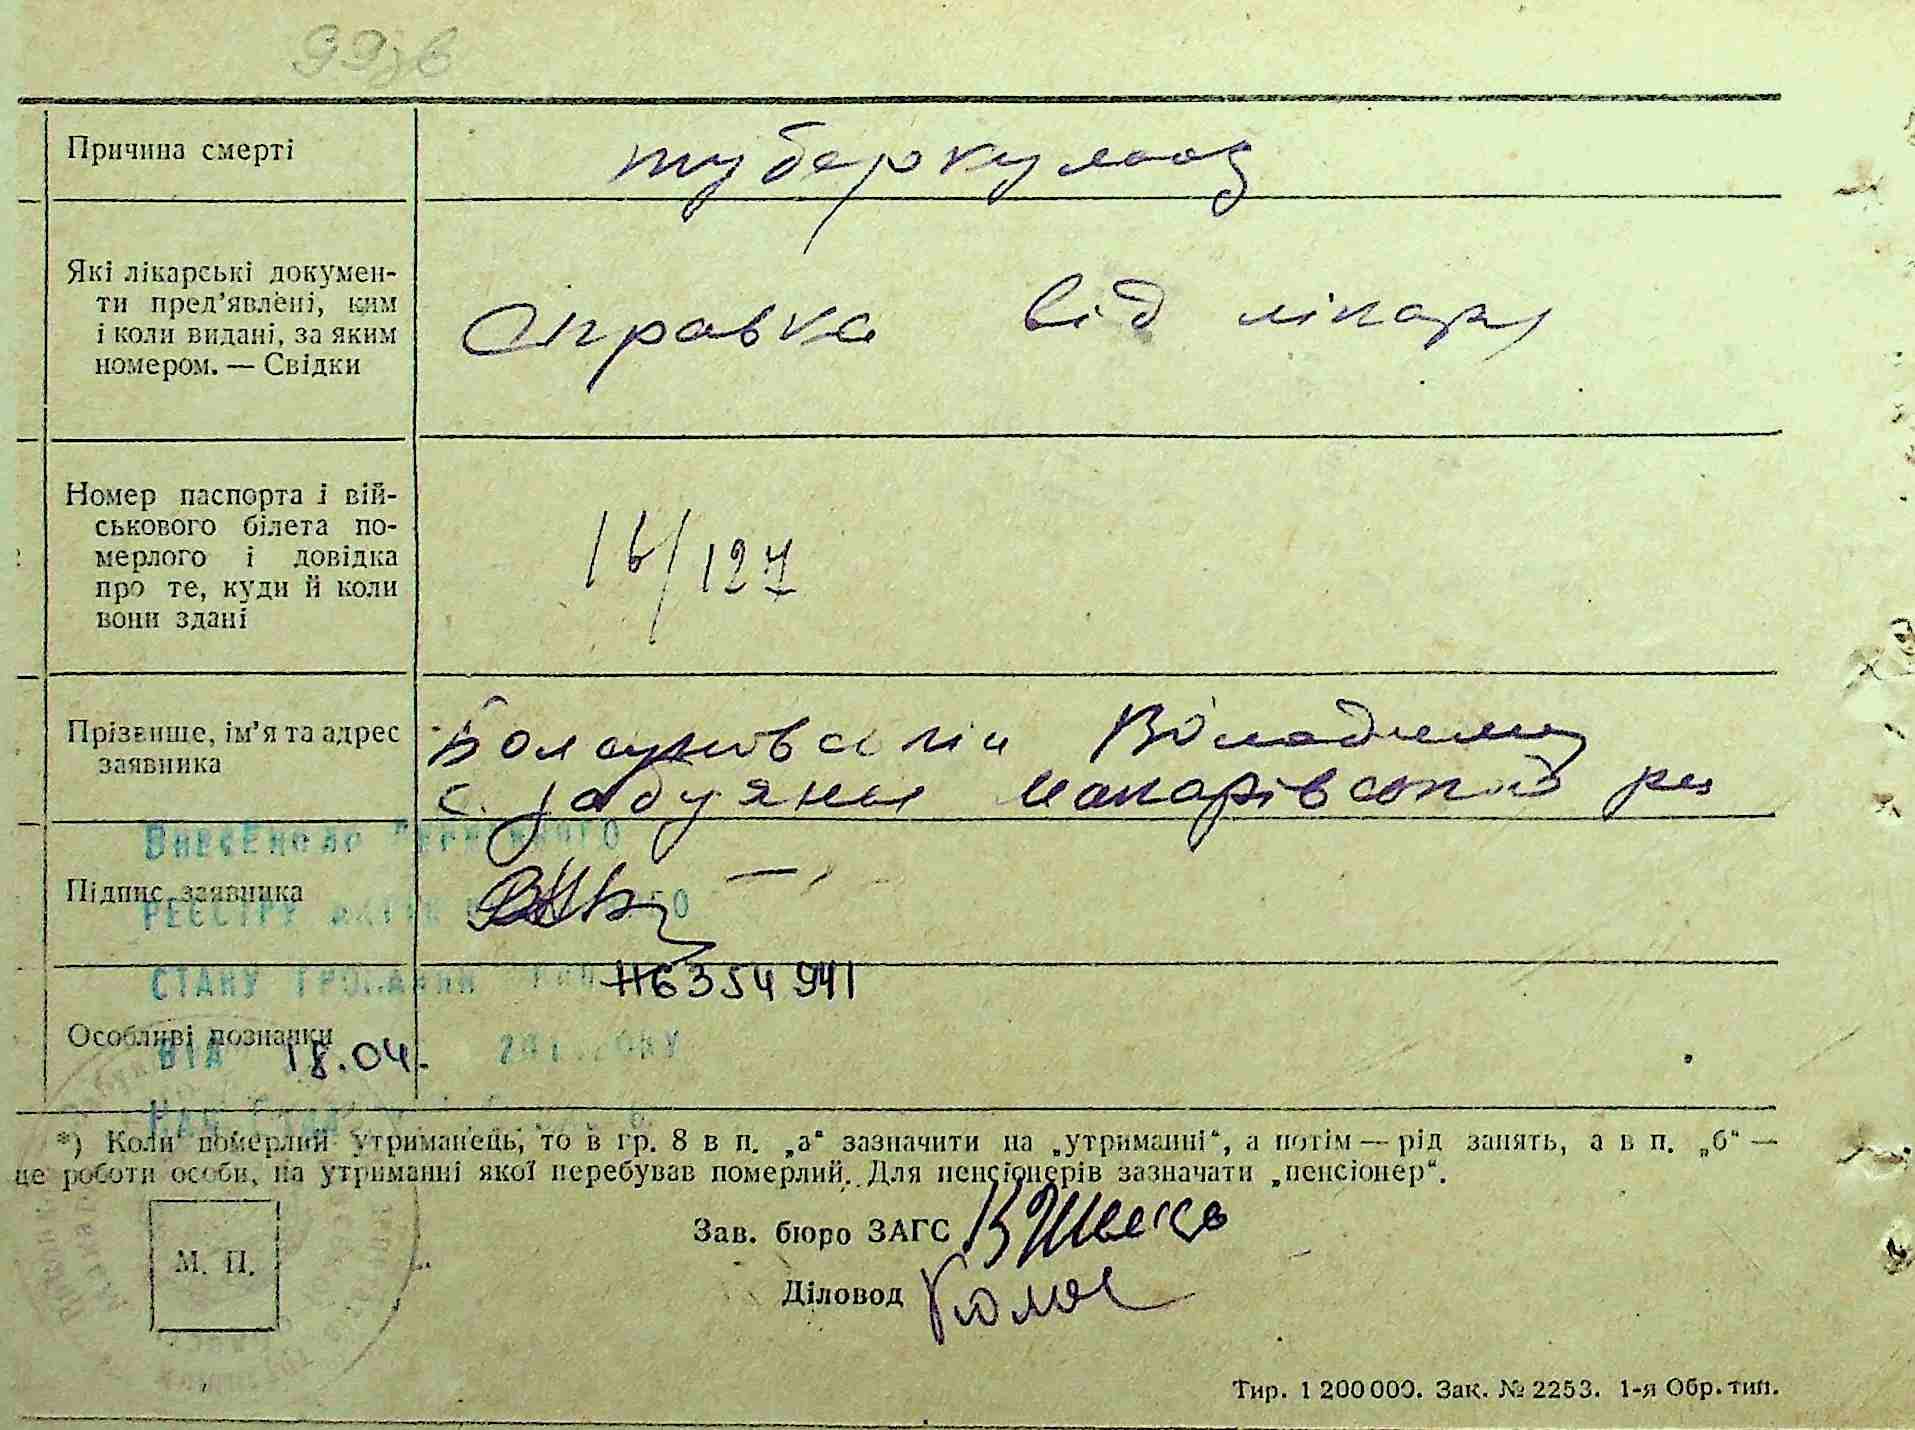 99зв
Причина смерті
туберкульоз
Які лікарські докумен-
ти пред'явлені, ким
і коли видані, за яким
номером. — Свідки
Справка від лікаря
Номер паспорта і вій-
ськового білета по-
мерлого і довідка
про те, куди й коли
вони здані
16/127
Прізвище, ім'я та адрес
заявника
Володимир
с. Забуяння Макарівський р-н
ВНЕСЕНО ДО ДЕРЖАВНОГО
Підпис заявника
РЕЄСТРУ АКТІВ
СТАНУ ГРОМАДЯН
116354941
Особливі познаки
ВІД 18.04. РОКУ
*) Коли померлий утриманець, то в гр. 8 в п. „а“ зазначити на „утриманні“, а потім — рід занять, а в п. „б“ —
це роботи особи, на утриманні якої перебував померлий. Для пенсіонерів зазначати „пенсіонер“.
М. П.
Зав. бюро ЗАГС
Діловод
Тир. 1 200 000. Зак. № 2253. 1-я Обр. тип.